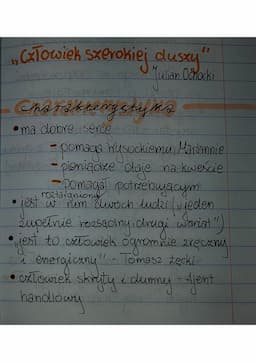 „Człowiek szerokiej duszy"
Julian Ochocki
Charakterystyka
• ma dobre serce
- pomaga Wysockiemu, Mariannie
- pieniądze daje na kweście
- pomaga potrzebującym
rozdwojony
• jest w nim dwóch ludzi („jeden
zupełnie rozsądny, drugi wariat")
• „jest to człowiek ogromnie zręczny
i energiczny" - Tomasz Łęcki
• człowiek skryty i dumny - ajent
handlowy